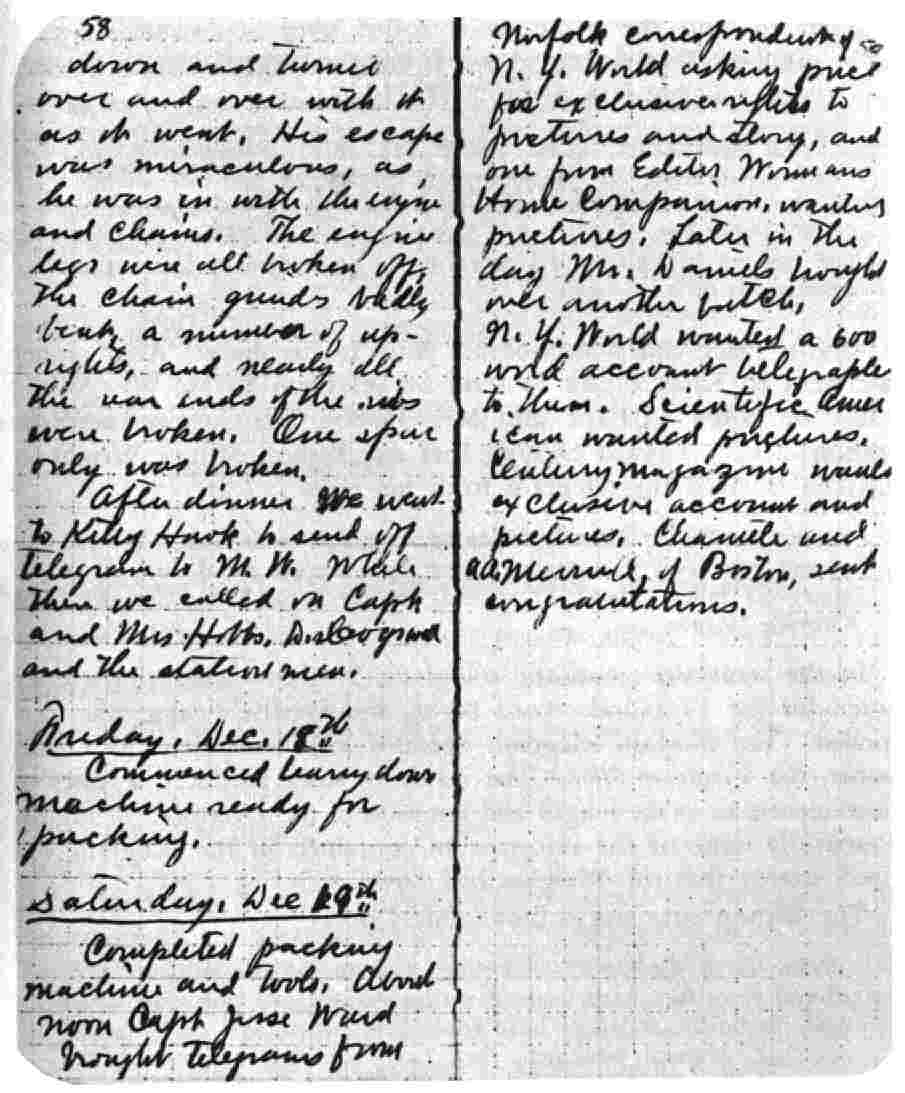 58
down and turned
over and over with it
as it went. His escape
was miraculous, as
he was in with the engine
and chains. The engine
legs were all broken off,
the chain guides badly
bent, a number of up-
rights, and nearly all
the rear ends of the ribs
were broken. One spar
only was broken.
After dinner we went
to Kitty Hawk to send off
telegram to M. W. While
there we called on Capt.
and Mrs. Hobbs, Dr. Cogswell
and the station men.
Friday, Dec. 18th
Commenced tearing down
machine ready for
packing.
Saturday, Dec 19th
Completed packing
machine and tools. About
noon Capt Jesse Ward
brought telegrams from
Norfolk correspondent of
N. Y. World asking price
for exclusive rights to
pictures and story, and
one from Editor Womans
Home Companion, wanting
pictures. Later in the
day Mr. Daniels brought
over another batch.
N. Y. World wanted a 600
word account telegraphed
to them. Scientific Amer
ican wanted pictures.
Century magazine wants
exclusive account and
pictures. Chanute and
A.A. Merrill, of Boston, sent
congratulations.